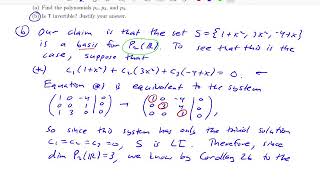 (a) Find the polynomials p₁, p₂, and p₃.
(b) Is T invertible? Justify your answer.
(b) Our claim is that the set S = {1+x², 3x², -4+x}
is a basis for P₂(ℝ). To see that this is the
case, suppose that
(*) c₁(1+x²) + c₂(3x²) + c₃(-4+x) = 0.
Equation (*) is equivalent to the system
(1 0 -4 | 0
0 0 1 | 0
1 3 0 | 0) → (1 0 -4 | 0
0 3 4 | 0
0 0 1 | 0)
So since this system has only the trivial solution
c₁ = c₂ = c₃ = 0, S is LI. Therefore, since
dim P₂(ℝ) = 3, we know by Corollary 26 to the